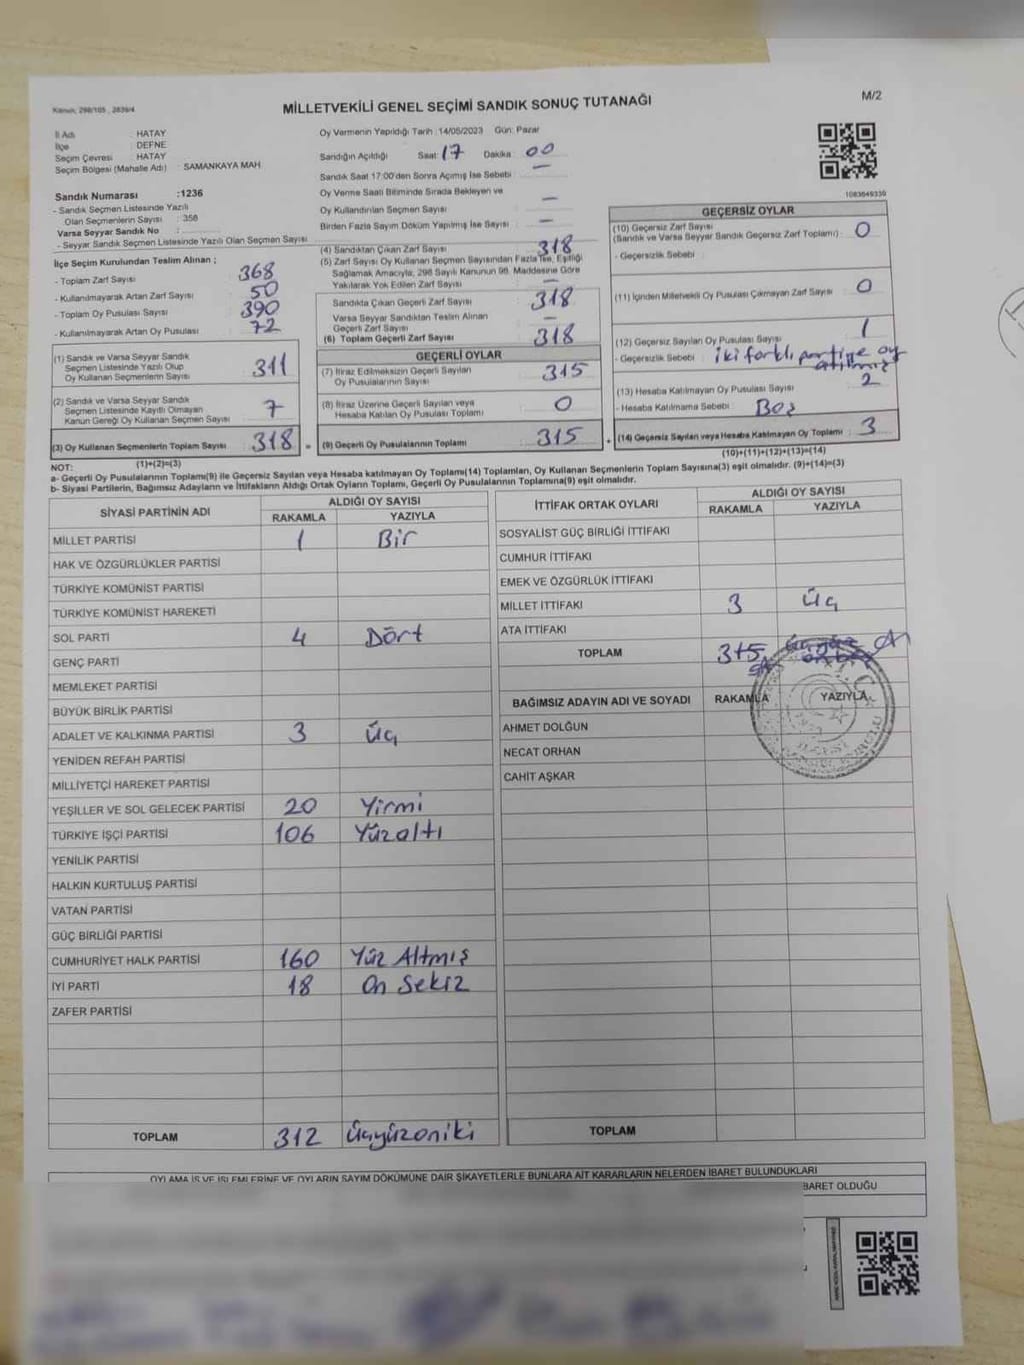 Kanun: 298/105 , 2839/4
MİLLETVEKİLİ GENEL SEÇİMİ SANDIK SONUÇ TUTANAĞI
M/2
İl Adı : HATAY
İlçe : DEFNE
Seçim Çevresi : HATAY
Seçim Bölgesi (Mahalle Adı) : SAMANKAYA MAH.
Oy Vermenin Yapıldığı Tarih : 14/05/2023 Gün: Pazar
Sandığın Açıldığı Saat: 17 Dakika : 00
Sandık Saat 17:00'den Sonra Açımış İse Sebebi : —
Oy Verme Saati Bitiminde Sırada Bekleyen ve
Oy Kullandırılan Seçmen Sayısı : —
Birden Fazla Sayım Döküm Yapılmış İse Sayısı : —
Sandık Numarası :1236
- Sandık Seçmen Listesinde Yazılı
Olan Seçmenlerin Sayısı : 356
Varsa Seyyar Sandık No :
- Seyyar Sandık Seçmen Listesinde Yazılı Olan Seçmen Sayısı :
İlçe Seçim Kurulundan Teslim Alınan ;
- Toplam Zarf Sayısı : 368
- Kullanılmayarak Artan Zarf Sayısı : 50
- Toplam Oy Pusulası Sayısı : 390
- Kullanılmayarak Artan Oy Pusulası : 72
(1) Sandık ve Varsa Seyyar Sandık
Seçmen Listesinde Yazılı Olup
Oy Kullanan Seçmenlerin Sayısı : 311
(2) Sandık ve Varsa Seyyar Sandık
Seçmen Listesinde Kayıtlı Olmayan
Kanun Gereği Oy Kullanan Seçmen Sayısı : 7
(3) Oy Kullanan Seçmenlerin Toplam Sayısı : 318 =
(1)+(2)=(3)
(4) Sandıktan Çıkan Zarf Sayısı : 318
(5) Zarf Sayısı Oy Kullanan Seçmen Sayısından Fazla İse, Eşitliği
Sağlamak Amacıyla, 298 Sayılı Kanunun 98. Maddesine Göre
Yakılarak Yok Edilen Zarf Sayısı : —
Sandıkta Çıkan Geçerli Zarf Sayısı : 318
Varsa Seyyar Sandıktan Teslim Alınan
Geçerli Zarf Sayısı :
(6) Toplam Geçerli Zarf Sayısı : 318
GEÇERLİ OYLAR
(7) İtiraz Edilmeksizin Geçerli Sayılan
Oy Pusulalarının Sayısı : 315
(8) İtiraz Üzerine Geçerli Sayılan veya
Hesaba Katılan Oy Pusulası Toplamı : 0
(9) Geçerli Oy Pusulalarının Toplamı : 315 +
1083649330
GEÇERSİZ OYLAR
(10) Geçersiz Zarf Sayısı
(Sandık ve Varsa Seyyar Sandık Geçersiz Zarf Toplamı) : 0
- Geçersizlik Sebebi :
(11) İçinden Milletvekili Oy Pusulası Çıkmayan Zarf Sayısı : 0
(12) Geçersiz Sayılan Oy Pusulası Sayısı : 1
- Geçersizlik Sebebi : iki farklı partiye oy
atılmış
(13) Hesaba Katılmayan Oy Pusulası Sayısı : 2
- Hesaba Katılmama Sebebi : Boş
(14) Geçersiz Sayılan veya Hesaba Katılmayan Oy Toplamı : 3
(10)+(11)+(12)+(13)=(14)
NOT:
a- Geçerli Oy Pusulalarının Toplamı(9) ile Geçersiz Sayılan veya Hesaba katılmayan Oy Toplamı(14) Toplamları, Oy Kullanan Seçmenlerin Toplam Sayısına(3) eşit olmalıdır. (9)+(14)=(3)
b- Siyasi Partilerin, Bağımsız Adayların ve İttifakların Aldığı Ortak Oyların Toplamı, Geçerli Oy Pusulalarının Toplamına(9) eşit olmalıdır.
SİYASİ PARTİNİN ADI ALDIĞI OY SAYISI
RAKAMLA YAZIYLA
MİLLET PARTİSİ 1 Bir
HAK VE ÖZGÜRLÜKLER PARTİSİ
TÜRKİYE KOMÜNİST PARTİSİ
TÜRKİYE KOMÜNİST HAREKETİ
SOL PARTİ 4 Dört
GENÇ PARTİ
MEMLEKET PARTİSİ
BÜYÜK BİRLİK PARTİSİ
ADALET VE KALKINMA PARTİSİ 3 üç
YENİDEN REFAH PARTİSİ
MİLLİYETÇİ HAREKET PARTİSİ
YEŞİLLER VE SOL GELECEK PARTİSİ 20 Yirmi
TÜRKİYE İŞÇİ PARTİSİ 106 Yüzaltı
YENİLİK PARTİSİ
HALKIN KURTULUŞ PARTİSİ
VATAN PARTİSİ
GÜÇ BİRLİĞİ PARTİSİ
CUMHURİYET HALK PARTİSİ 160 Yüz Altmış
İYİ PARTİ 18 On Sekiz
ZAFER PARTİSİ
TOPLAM 312 üçyüzoniki
İTTİFAK ORTAK OYLARI ALDIĞI OY SAYISI
RAKAMLA YAZIYLA
SOSYALİST GÜÇ BİRLİĞİ İTTİFAKI
CUMHUR İTTİFAKI
EMEK VE ÖZGÜRLÜK İTTİFAKI
MİLLET İTTİFAKI 3 üç
ATA İTTİFAKI
TOPLAM 315
BAĞIMSIZ ADAYIN ADI VE SOYADI RAKAMLA YAZIYLA
AHMET DOLĞUN
NECAT ORHAN
CAHİT AŞKAR
TOPLAM
OYLAMA İŞ VE İŞLEMLERİNE VE OYLARIN SAYIM DÖKÜMÜNE DAİR ŞİKAYETLERLE BUNLARA AİT KARARLARIN NELERDEN İBARET BULUNDUKLARI
BARET OLDUĞU